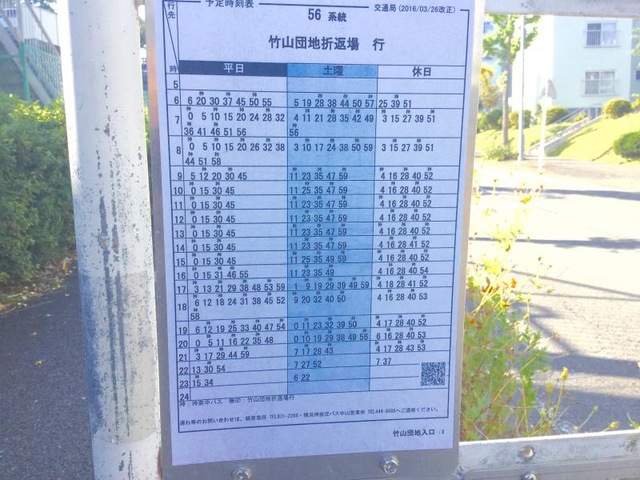 予定時刻表 交通局(2016/03/26改正)
行先 56 系統
竹山団地折返場 行
時 平日 土曜 休日
5
6 6 20 30 37 45 50 55 5 19 28 38 44 50 57 25 39 51
7 0 5 10 15 20 24 28 32 4 11 21 28 35 42 49 3 15 27 39 51
36 41 46 51 56 56
8 0 5 10 15 20 26 32 38 3 10 17 24 38 50 59 3 15 27 39 51
44 51 58
9 5 12 20 30 45 11 23 35 47 59 4 16 28 40 52
10 0 15 30 45 11 25 35 47 59 4 16 28 40 52
11 0 15 30 45 11 23 35 47 59 4 16 28 40 52
12 0 15 30 45 11 23 35 47 59 4 16 28 40 52
13 0 15 30 45 11 23 35 47 59 4 16 28 40 52
14 0 15 30 45 11 23 35 47 59 4 16 28 41 52
15 0 15 30 45 11 25 35 49 59 4 16 28 40 52
16 0 15 31 46 55 11 23 35 49 4 16 28 40 54
17 3 13 21 29 38 48 53 59 1 9 19 29 39 49 59 4 18 28 41 52
18 6 12 18 24 31 38 45 52 9 20 32 40 50 4 16 28 40 53
58
19 6 12 19 25 33 40 47 54 0 11 23 32 39 50 4 17 28 40 52
20 0 5 11 16 22 35 48 0 10 19 29 38 49 56 6 16 28 40 53
21 3 17 29 44 59 7 17 28 43 4 17 28 43 53
22 13 30 54 7 27 52 7 37
23 15 34 6 22
24
神:神奈中バス 無印:竹山団地折返場行
竹山団地入口